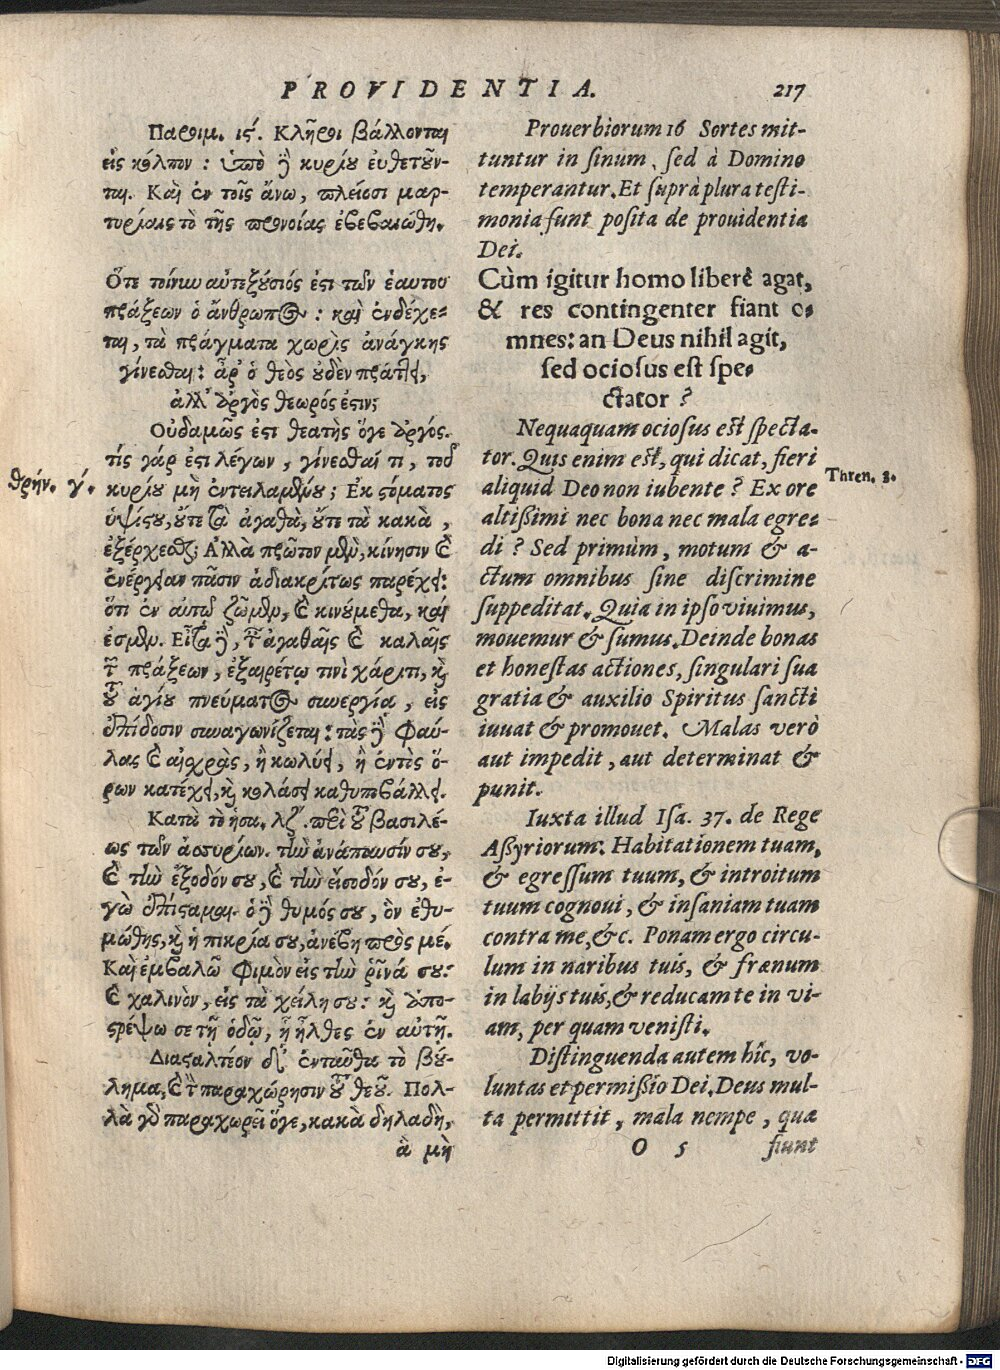 PROVIDENTIA. 217
Παροιμ. ις΄. Κλῆροι βάλλονται
εἰς κόλπον : ὑπὸ δὲ κυρίου εὐθετοῦν-
ται. Καὶ ἐν τοῖς ἄνω, πλείοσι μαρ-
τυρίαις τὸ τῆς προνοίας ἐβεβαιώθη.
Ὅτε τοίνυν αὐτεξούσιός ἐστι τῶν ἑαυτοῦ
πράξεων ὁ ἄνθρωπος : καὶ ἐνδέχε-
ται, τὰ πράγματα χωρὶς ἀνάγκης
γίνεσθαι : ἆρ' ὁ θεὸς οὐδὲν πράττει,
ἀλλ' ἀργὸς θεωρός ἐστιν;
Οὐδαμῶς ἐστι θεατὴς ὅγε ἀργός.
τίς γάρ ἐστι λέγων, γίνεσθαί τι, τοῦ
θρήν. γ΄.
κυρίου μὴ ἐντειλαμένου; Ἐκ στόματος
ὑψίστου, οὔτε τὰ ἀγαθὰ, οὔτε τὰ κακὰ,
ἐξέρχεσθαι; Ἀλλὰ πρῶτον μὲν, κίνησιν καὶ
ἐνέργειαν πᾶσιν ἀδιακρίτως παρέχει:
ὅτι ἐν αὐτῷ ζῶμεν, καὶ κινούμεθα, καί
ἐσμεν. Εἶτα δὲ, ταῖς ἀγαθαῖς καὶ καλαῖς
τῶν πράξεων, ἐξαιρέτῳ τινὶ χάριτι, καὶ
τοῦ ἁγίου πνεύματος συνεργίᾳ, εἰς
ἐπίδοσιν συναγωνίζεται : τὰς δὲ φαύ-
λας καὶ αἰσχρὰς, ἢ κωλύει, ἢ ἐντὸς ὅ-
ρων κατέχει, καὶ κολάσει καθυποβάλλει.
Κατὰ τὸ ἡσα. λζ΄. περὶ τοῦ βασιλέ-
ως τῶν ἀσσυρίων. τὴν ἀνάπαυσίν σου,
καὶ τὴν ἔξοδόν σου, καὶ τὴν εἴσοδόν σου, ἐ-
γὼ ἐπίσταμαι. ὁ δὲ θυμός σου, ὃν ἐθυ-
μώθης, καὶ ἡ πικρία σου, ἀνέβη πρὸς μέ.
Καὶ ἐμβαλῶ φιμὸν εἰς τὴν ῥῖνά σου:
καὶ χαλινὸν, εἰς τὰ χείλη σου : καὶ ἀπο-
στρέψω σε τῇ ὁδῷ, ᾗ ἦλθες ἐν αὐτῇ.
Διασταλτέον δ' ἐνταῦθα τὸ βού-
λημα, καὶ τὴν παραχώρησιν τοῦ θεοῦ. Πολ-
λὰ γὸ παραχωρεῖ ὅγε, κακὰ δηλαδὴ,
ἃ μὴ
Prouerbiorum 16 Sortes mit-
tuntur in sinum, sed à Domino
temperantur. Et suprà plura testi-
monia sunt posita de prouidentia
Dei.
Cùm igitur homo liberè agat,
& res contingenter fiant o-
mnes: an Deus nihil agit,
sed ociosus est spe-
ctator ?
Nequaquam ociosus est specta-
tor. Quis enim est, qui dicat, fieri
Thren. 3.
aliquid Deo non iubente ? Ex ore
altißimi nec bona nec mala egre-
di ? Sed primùm, motum & a-
ctum omnibus sine discrimine
suppeditat. Quia in ipso viuimus,
mouemur & sumus. Deinde bonas
et honestas actiones, singulari sua
gratia & auxilio Spiritus sancti
iuuat & promouet. Malas verò
aut impedit, aut determinat &
punit.
Iuxta illud Isa. 37. de Rege
Aßyriorum: Habitationem tuam,
& egressum tuum, & introitum
tuum cognoui, & insaniam tuam
contra me, &c. Ponam ergo circu-
lum in naribus tuis, & frænum
in labijs tuis, & reducam te in vi-
am, per quam venisti.
Distinguenda autem hîc, vo-
luntas et permißio Dei. Deus mul-
ta permittit, mala nempe, quæ
O 5 fiunt
Digitalisierung gefördert durch die Deutsche Forschungsgemeinschaft - DFG